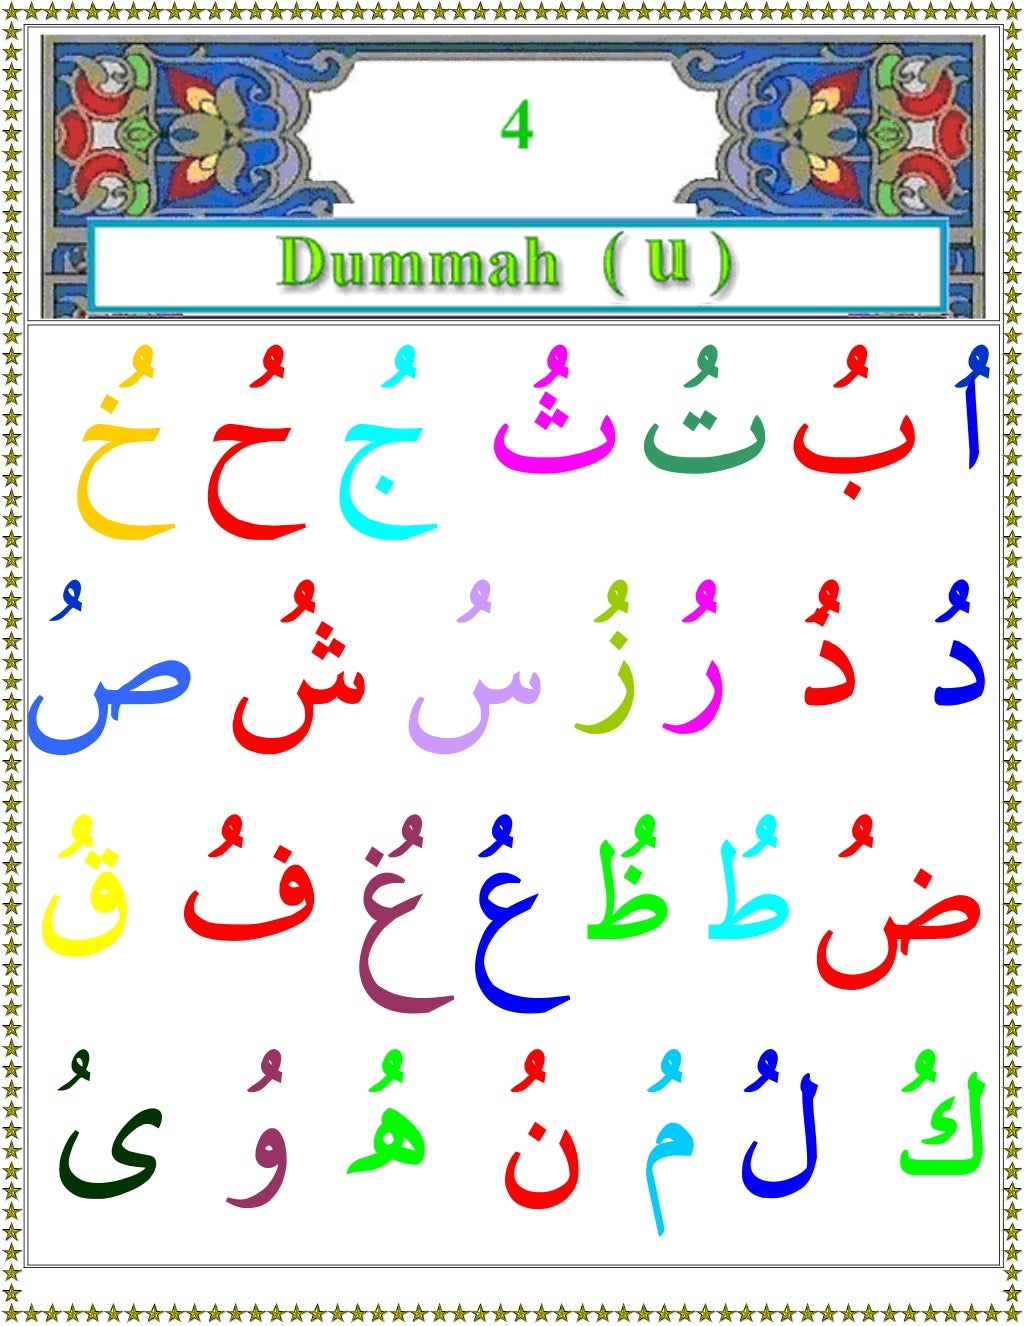 4
Dummah ( u )
اُ بُ تُ ثُ جُ حُ خُ
دُ ذُ رُ زُ سُ شُ صُ
ضُ طُ ظُ عُ غُ فُ قُ
كُ لُ مُ نُ هُ وُ ىُ